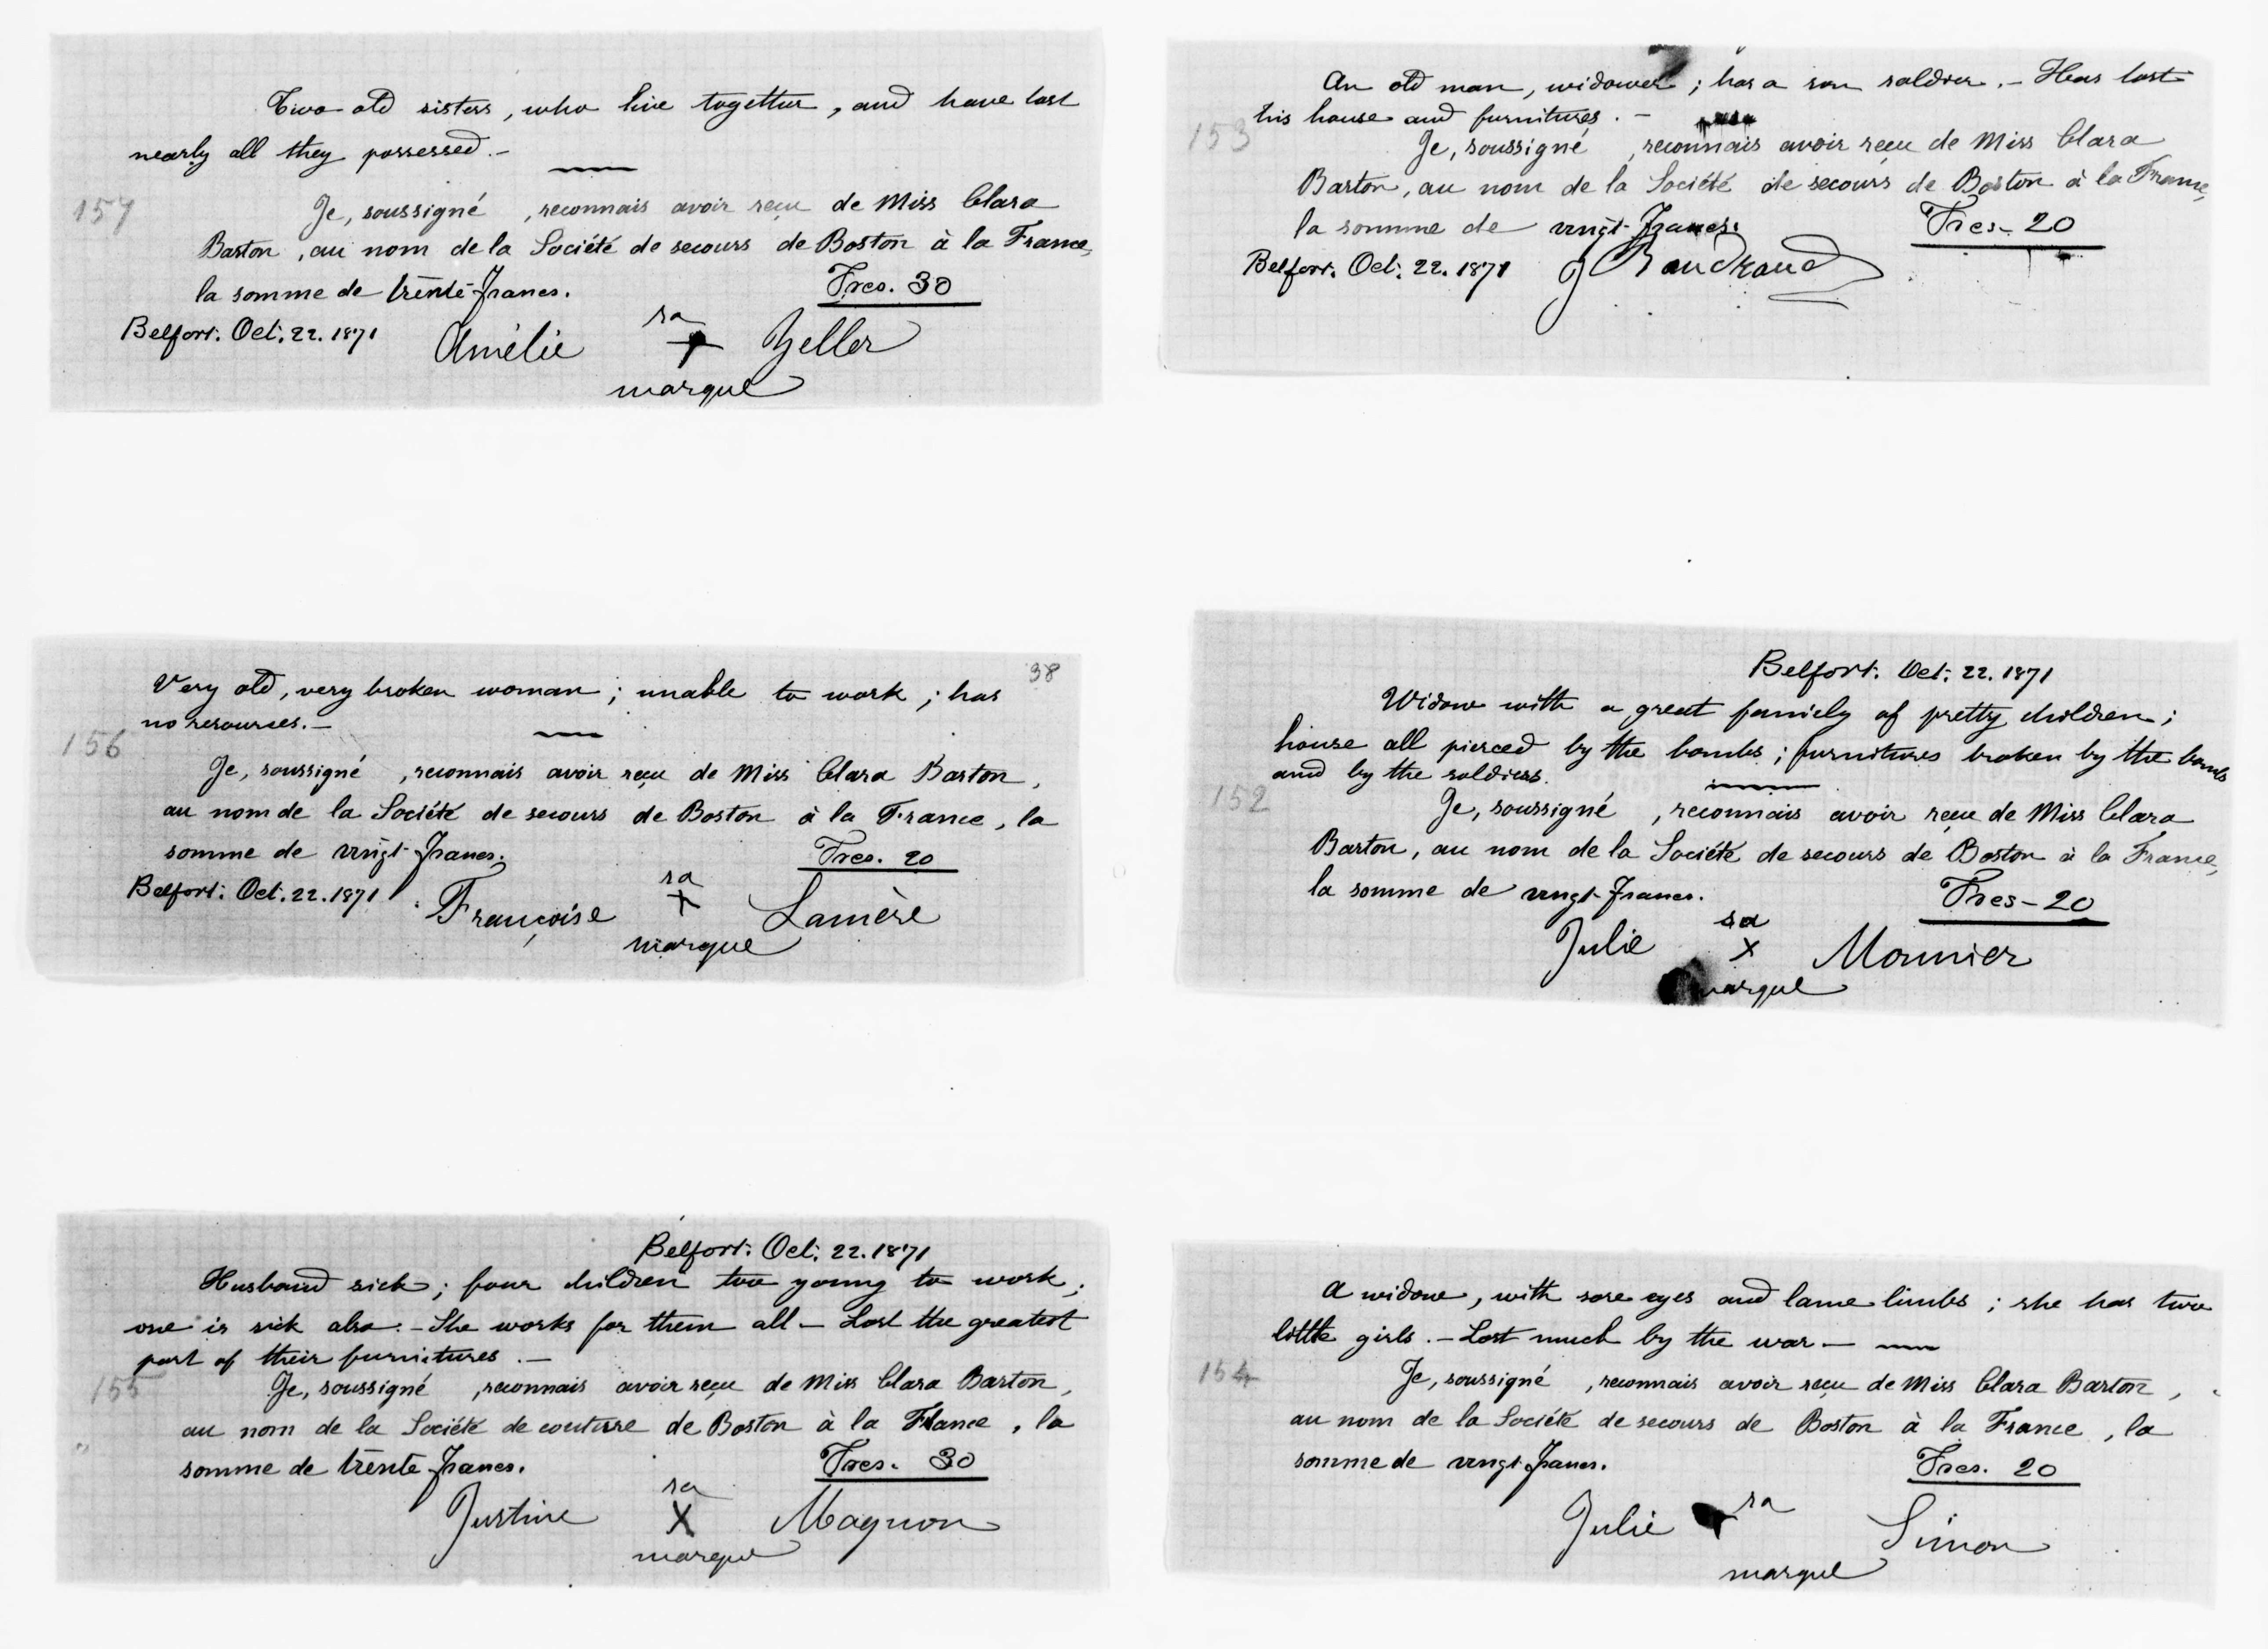 Two old sisters, who live together, and have lost
nearly all they possessed.—
157
Je, soussigné , reconnais avoir reçu de Miss Clara
Barton, au nom de la Société de secours de Boston à la France,
la somme de trente francs.
Frcs. 30
Belfort. Oct. 22. 1871
Amélie sa + marque Zeller
38
Very old, very broken woman; unable to work; has
no resources.—
156
Je, soussigné , reconnais avoir reçu de Miss Clara Barton,
au nom de la Société de secours de Boston à la France, la
somme de vingt francs.
Frcs. 20
Belfort. Oct. 22. 1871
Françoise sa X marque Lamère
Belfort. Oct. 22. 1871
Husband sick; four children too young to work;
one is sick also.— She works for them all— Lost the greatest
part of their furnitures.—
155
Je, soussigné , reconnais avoir reçu de Miss Clara Barton,
au nom de la Société de couture de Boston à la France, la
somme de trente francs.
Frcs. 30
Justine sa X marque Magnon
An old man, widower; has a son soldier.— Has lost
his house and furnitures.—
153
Je, soussigné , reconnais avoir reçu de Miss Clara
Barton, au nom de la Société de secours de Boston à la France,
la somme de vingt francs.
Frcs- 20
Belfort. Oct. 22. 1871
J Baudraud
Belfort. Oct. 22. 1871
Widow with a great family of pretty children;
house all pierced by the bombs; furnitures broken by the bombs
and by the soldiers.
152
Je, soussigné , reconnais avoir reçu de Miss Clara
Barton, au nom de la Société de secours de Boston à la France,
la somme de vingt francs.
Frcs- 20
Julie sa X marque Monnier
A widow, with sore eyes and lame limbs; she has two
little girls.— Lost much by the war—
154
Je, soussigné , reconnais avoir reçu de Miss Clara Barton,
au nom de la Société de secours de Boston à la France, la
somme de vingt francs.
Frcs. 20
Julie sa marque Simon